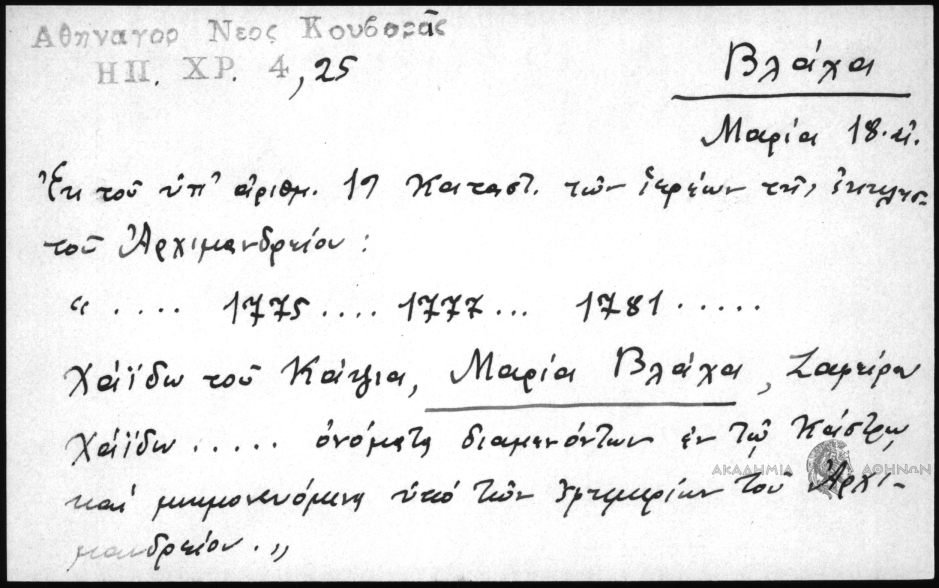 Αθηναγορ Νεος Κουβαρᾶς
ΗΠ. ΧΡ. 4, 25
Βλάχα
Μαρία 18. αἰ.
Ἐκ τοῦ ὑπ' ἀριθμ. 17 Καταστ. τῶν ἱερέων τῆς ἐκκλησ.
τοῦ Ἀρχιμανδρείου :
“ . . . . 1775 . . . . 1777 . . . 1781 . . . . .
Χάϊδω τοῦ Κάτζια, Μαρία Βλάχα, Ζαφείρω
Χάϊδω . . . . . ὀνόματα διαμενόντων ἐν τῷ Κάστρῳ
καὶ μνημονευόμενα ὑπὸ τῶν ἐφημερίων τοῦ Ἀρχι-
μανδρείου. „
ΑΚΑΔΗΜΙΑ ΑΘΗΝΩΝ